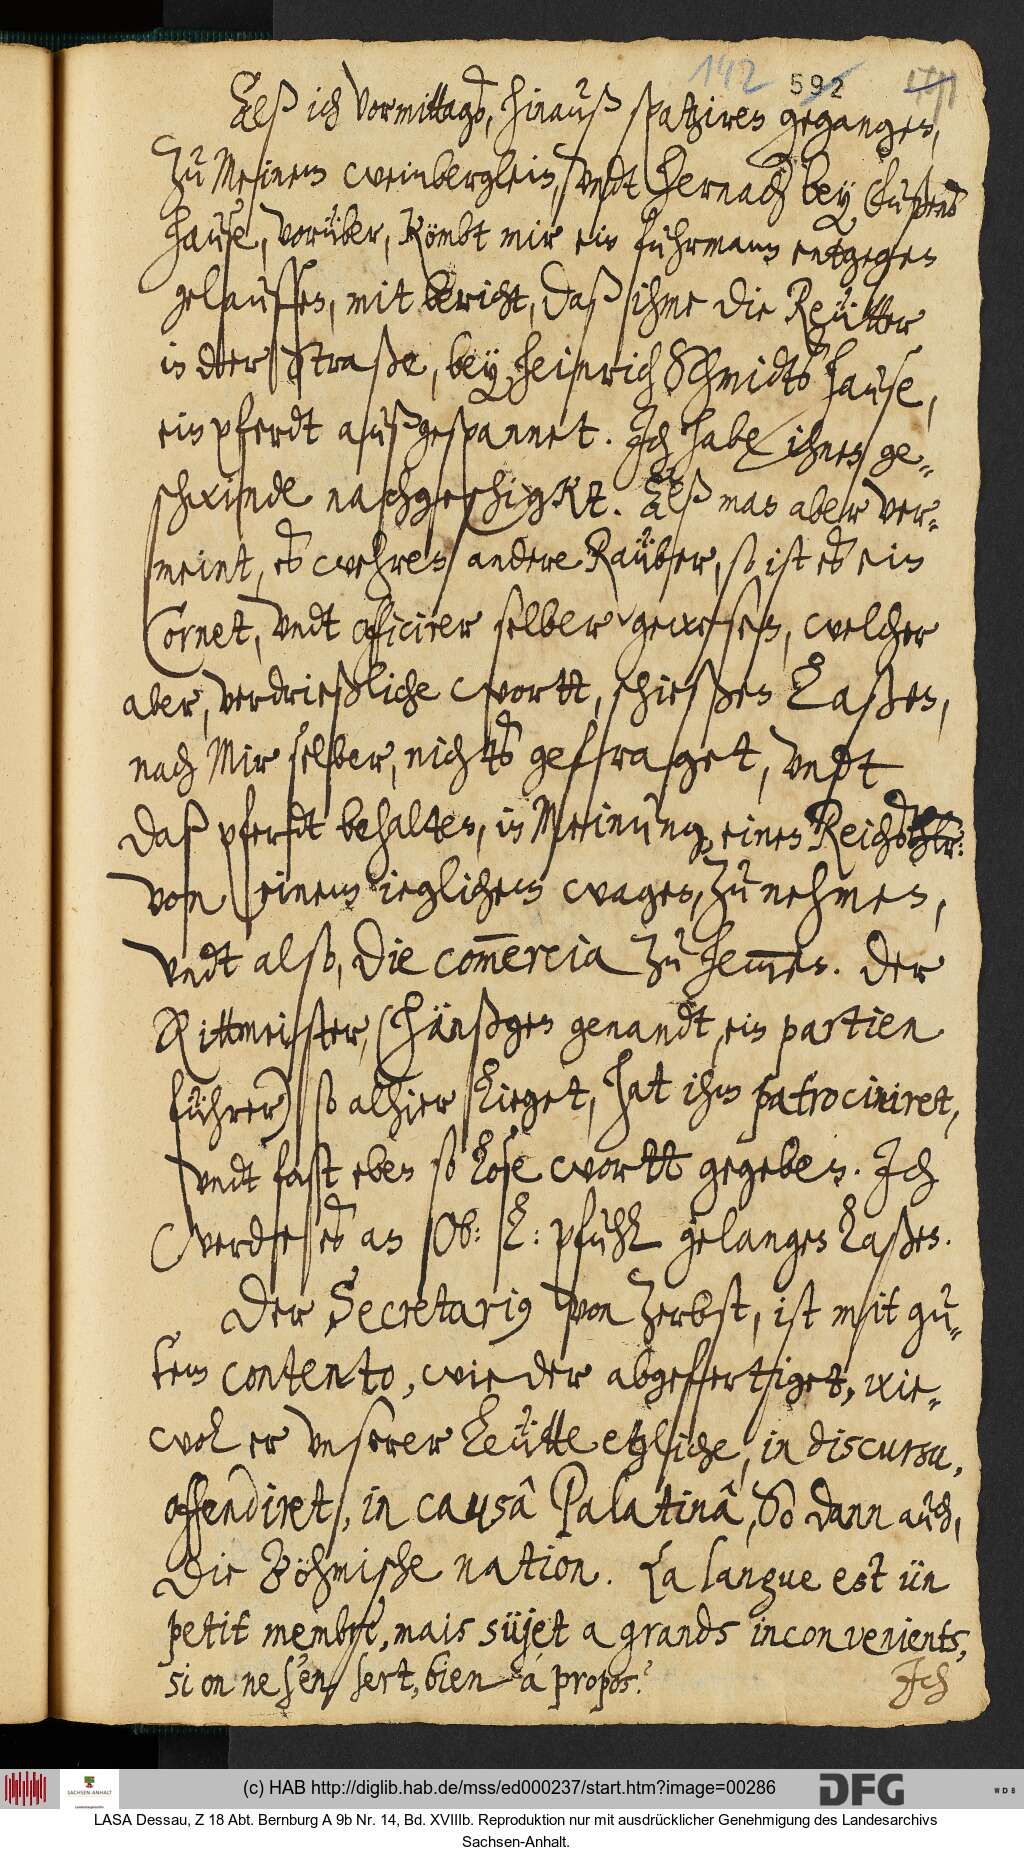 142 592
Alß ich vormittags, hinauß spatziren gegangen,
zu Meinem weinberglein, undt hernach bey
hause, vorüber, kömbt mir ein fuhrmann entgegen
gelauffen, mit bericht, daß ihme die Reütter
in der Straße, bey Heinrich Schmidts hause,
ein pferdt außgespannet. Ich habe ihnen ge-
schwinde nachgeschigktt. Alß man aber ver-
meint, es wehren andere Raüber, so ist es ein
Cornet, undt officirer selber gewesen, welcher
aber, verdrießliche wortt, schießen laßen,
nach Mir selber, nichts gefraget, undt
daß pferdt behalten, in Meinung, eines Reichsthlr:
von einem ieglichem wagen, zu nehmen,
undt also, die com̄ercia zu hem̄en. Der
Rittmeister, (Hänßgen genandt, ein partien
führer) so alhier lieget, hat ihm patrociniret,
undt fast eben so lose wortt gegeben. Ich
werde es an Ob: L: pfuhl gelangen laßen.
Der Secretarius von Zerbst, ist mit gu-
tem contento, wieder abgeffertiget, wie-
wol er unserer leütte etzliche, in discursu,
offendiret, in causâ Palatinâ, So dann auch,
die Böhmische nation. La langue est ün
petit membre, mais süjét a grands inconvenients,
si on ne s'en sert, bien á propos.
Ich
(c) HAB http://diglib.hab.de/mss/ed000237/start.htm?image=00286
DFG
WDB
SACHSEN-ANHALT
LASA Dessau, Z 18 Abt. Bernburg A 9b Nr. 14, Bd. XVIIIb. Reproduktion nur mit ausdrücklicher Genehmigung des Landesarchivs
Sachsen-Anhalt.